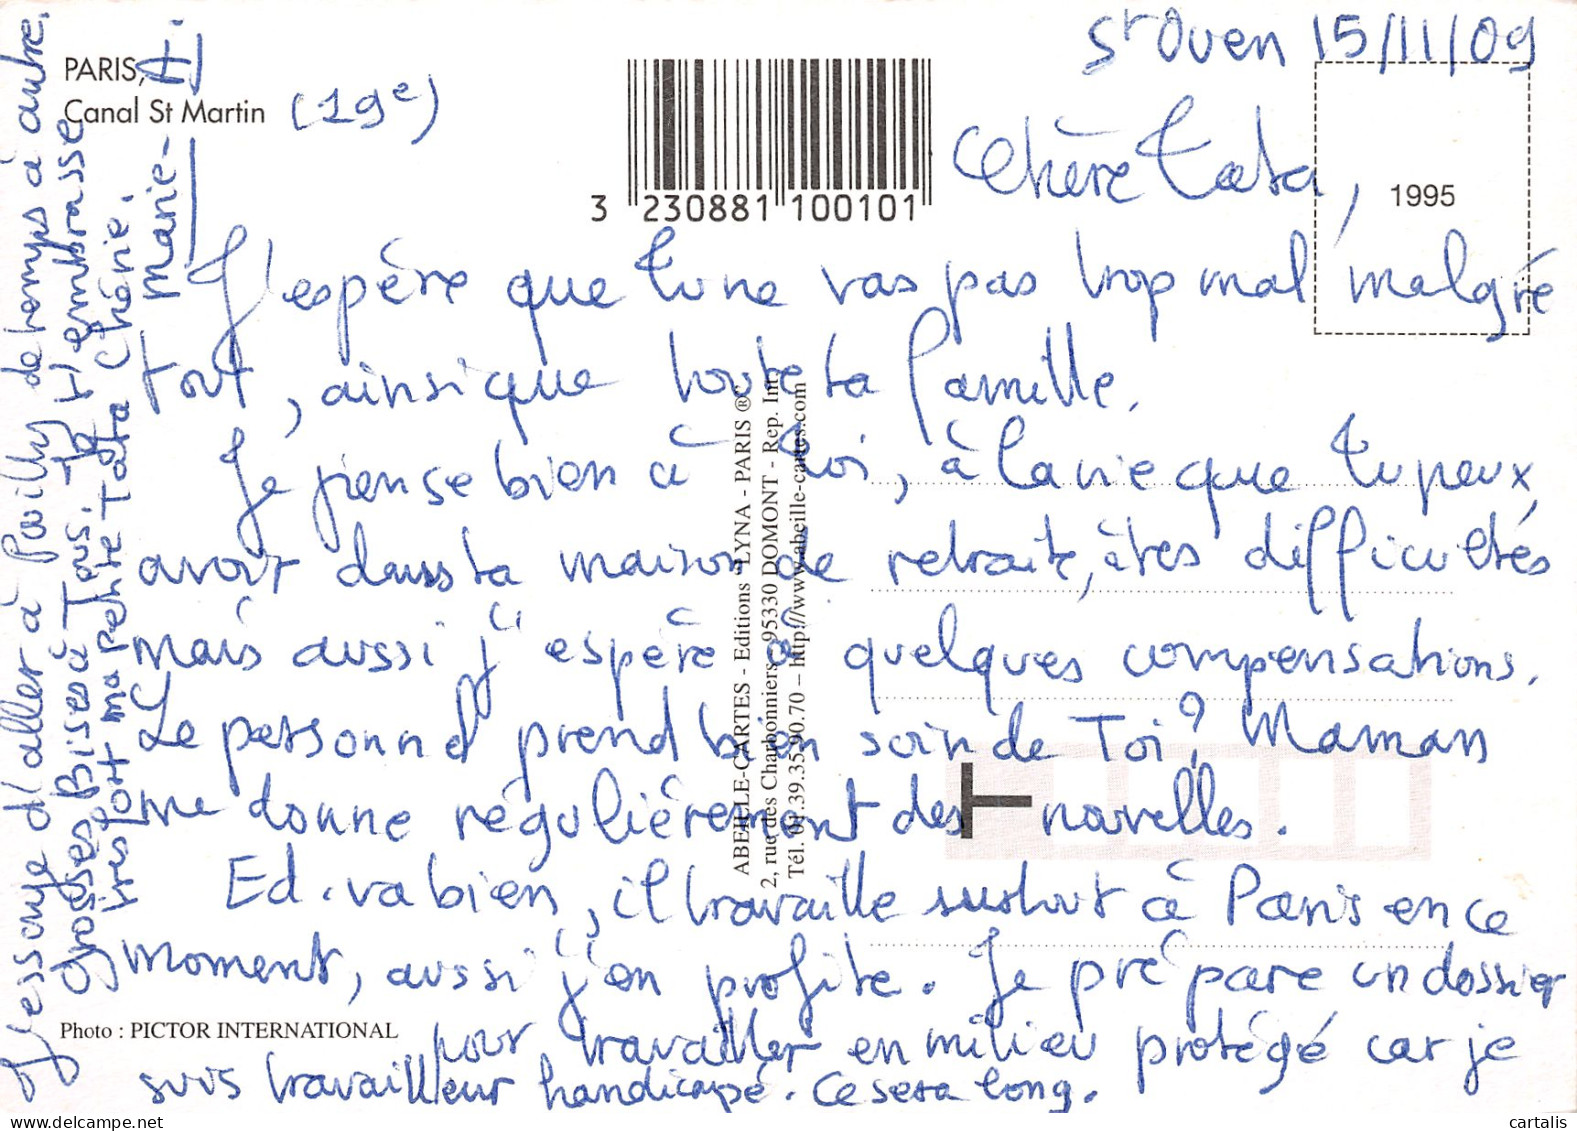 St Ouen 15/11/09
PARIS,
Canal St Martin (19e)
3 230881 100101
1995
Chère Tata,
J'espère que tu ne vas pas trop mal malgré
tout, ainsi que toute ta famille.
Je pense bien à toi, à la vie que tu peux
avoir dans ta maison de retraite, à tes difficultés
mais aussi j'espère à quelques compensations.
Le personnel prend bien soin de Toi? Maman
me donne régulièrement des nouvelles.
Ed. va bien, il travaille surtout à Paris en ce
moment, aussi j'en profite. Je prépare un dossier
pour travailler en milieu protégé car je
suis travailleur handicapé. Ce sera long.
J'essaye d'aller à Pavilly de temps à autre.
Grosses Bises à Tous. Je t'embrasse
très fort ma petite Tata Chérie.
Marie-H.
ABEILLE-CARTES - Editions "LYNA - PARIS ®©
2, rue des Charbonniers - 95330 DOMONT - Rep. Int.
Tél. 01.39.35.90.70 – http://www.abeille-cartes.com
Photo : PICTOR INTERNATIONAL
cartalis